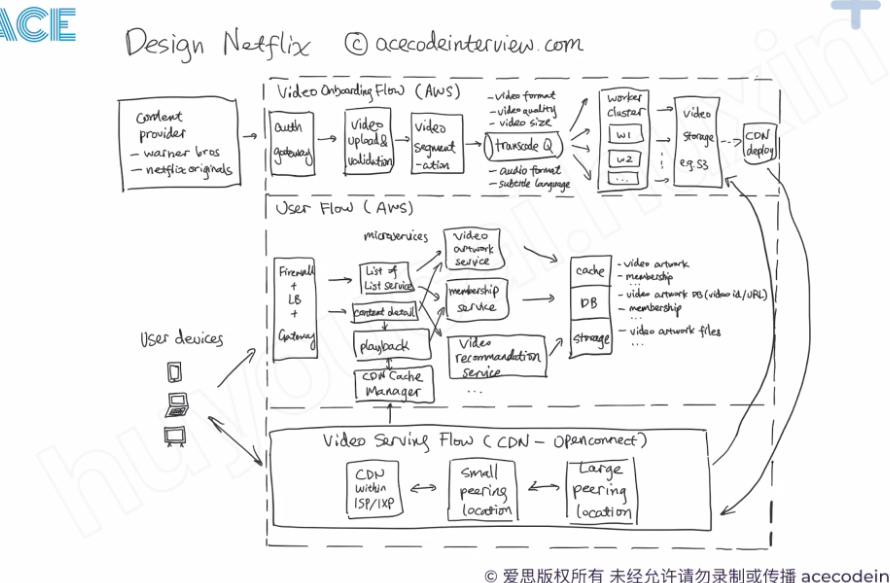 ACE
Design Netflix © acecodeinterview.com
Video Onboarding Flow (AWS)
content
provider
- warner bros
- netflix originals
auth
gateway
video
upload &
validation
video
segment
-ation
- video format
- video quality
- video size
transcode Q
- audio format
- subtitle language
worker
cluster
w1
w2
...
video
storage
eg. S3
CDN
deploy
User Flow (AWS)
microservices
Firewall
+
LB
+
Gateway
List of
List service
content detail
playback
CDN Cache
Manager
video
artwork
service
membership
service
video
recommandation
service
...
cache
DB
storage
- video artwork
- membership
...
- video artwork DB (video id/URL)
- membership
...
- video artwork files
...
User devices
Video Serving Flow (CDN - Openconnect)
CDN
within
ISP/IXP
small
peering
location
Large
peering
location
© 爱思版权所有 未经允许请勿录制或传播 acecodein